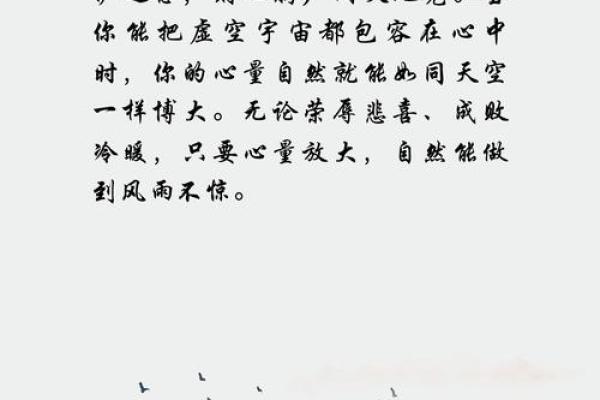 你能把虚空宇宙都包容在心中
时，你的心量自然就能如同天空
一样博大。无论荣辱悲喜、成败
冷暖，只要心量放大，自然能做
到风雨不惊。